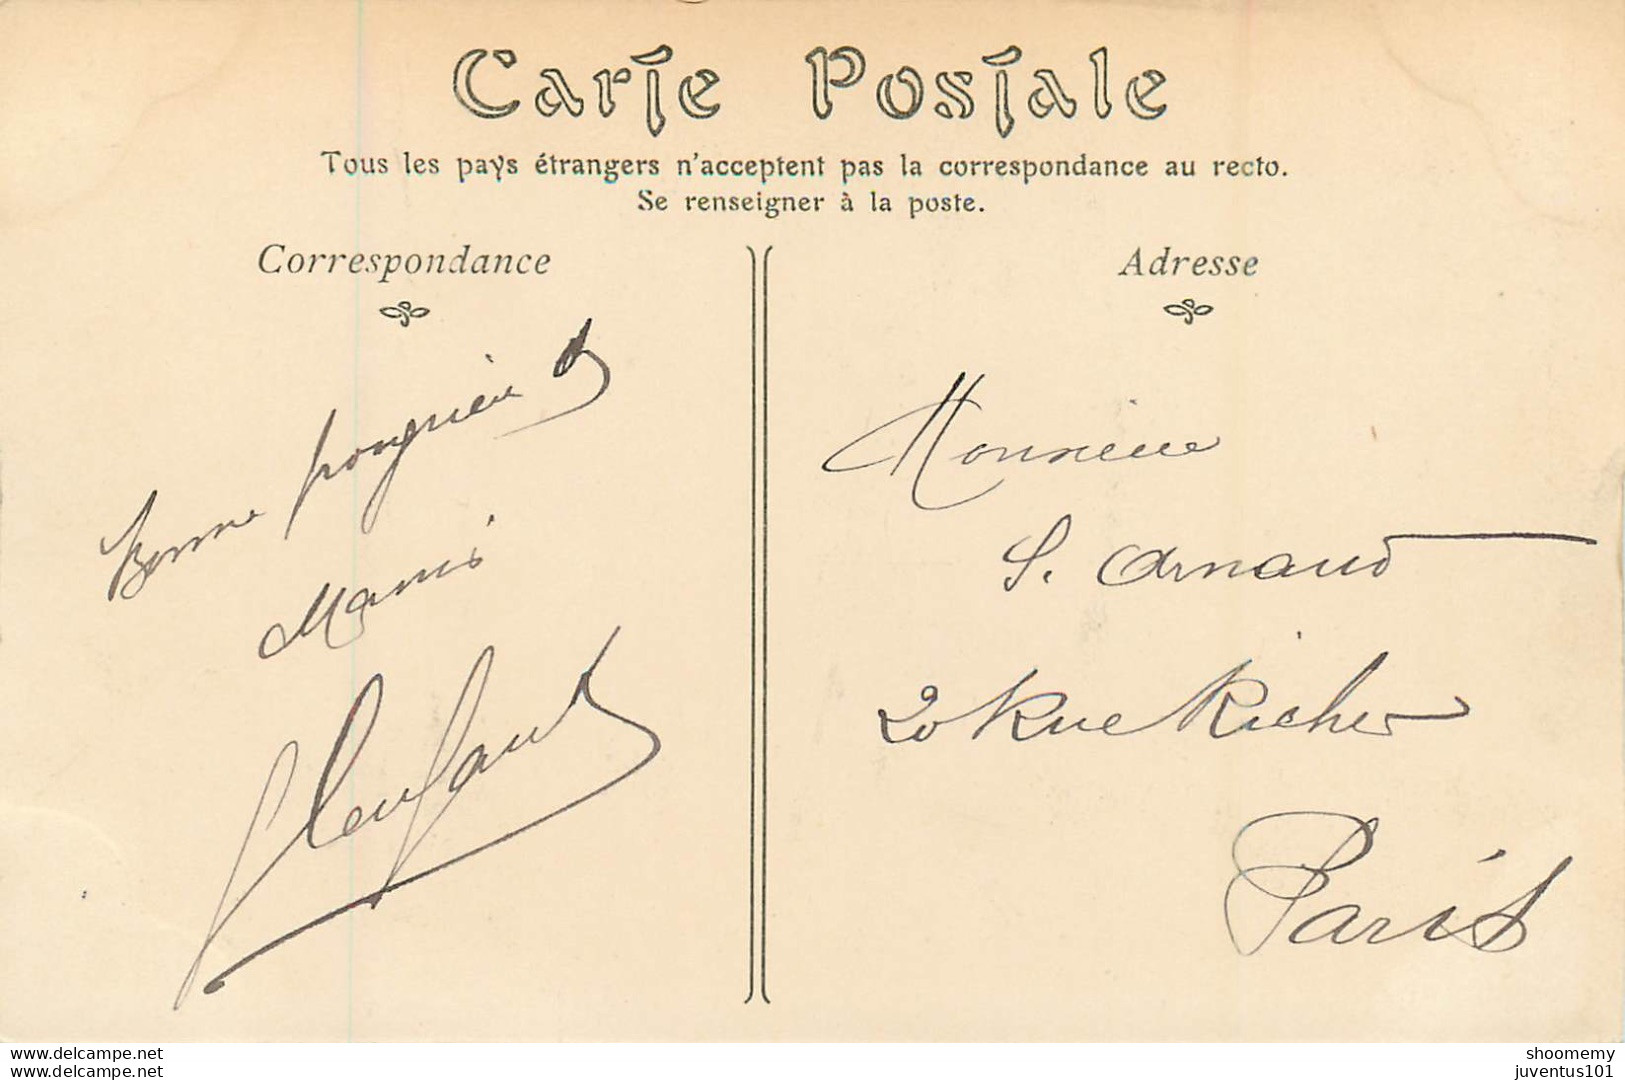 Carte Postale
Tous les pays étrangers n'acceptent pas la correspondance au recto.
Se renseigner à la poste.
Correspondance
Bonne
Adresse
Monsieur
S. Arnaud
20 Rue Richer
Paris
www.delcampe.net
www.delcampe.net
shoomemy
juventus101